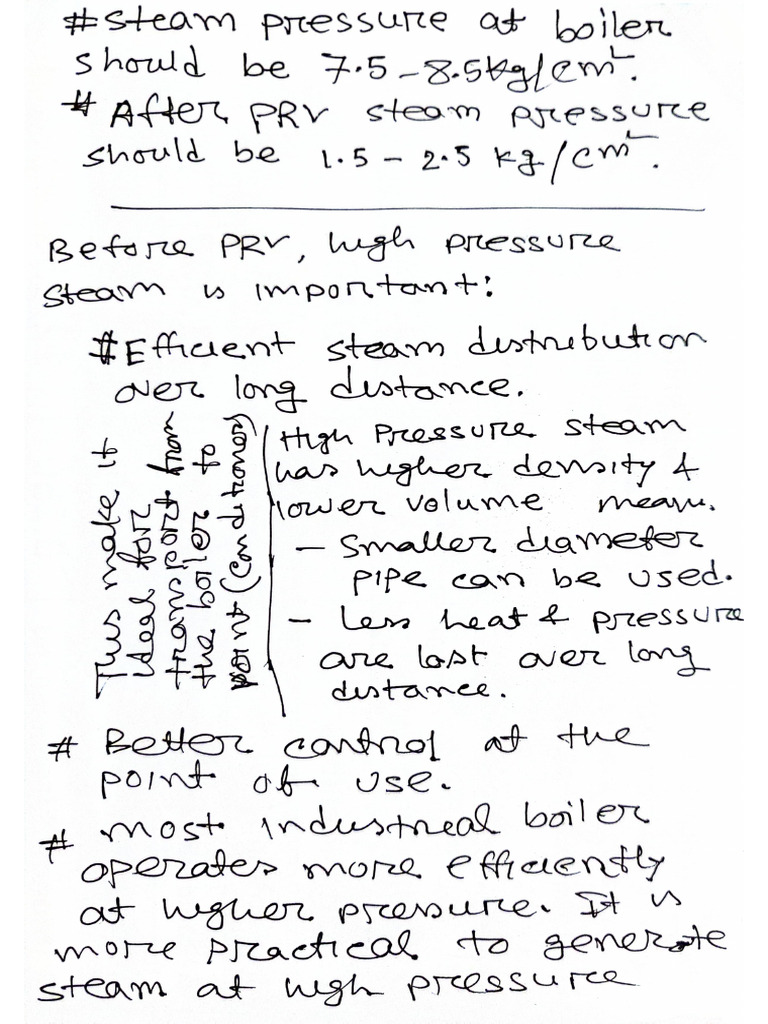 # Steam pressure at boiler
should be 7.5 – 8.5 kg/cm².
# After PRV steam pressure
should be 1.5 – 2.5 kg/cm².
Before PRV, high pressure
steam is important:
# Efficient steam distribution
over long distance.
This make it
ideal for
transport from
the boiler to
point (Conditioner)
High Pressure steam
has higher density &
lower volume means.
– Smaller diameter
pipe can be used.
– Less heat & pressure
are lost over long
distance.
# Better control at the
point of use.
# most industrial boiler
operates more efficiently
at higher pressure. It is
more practical to generate
steam at high pressure